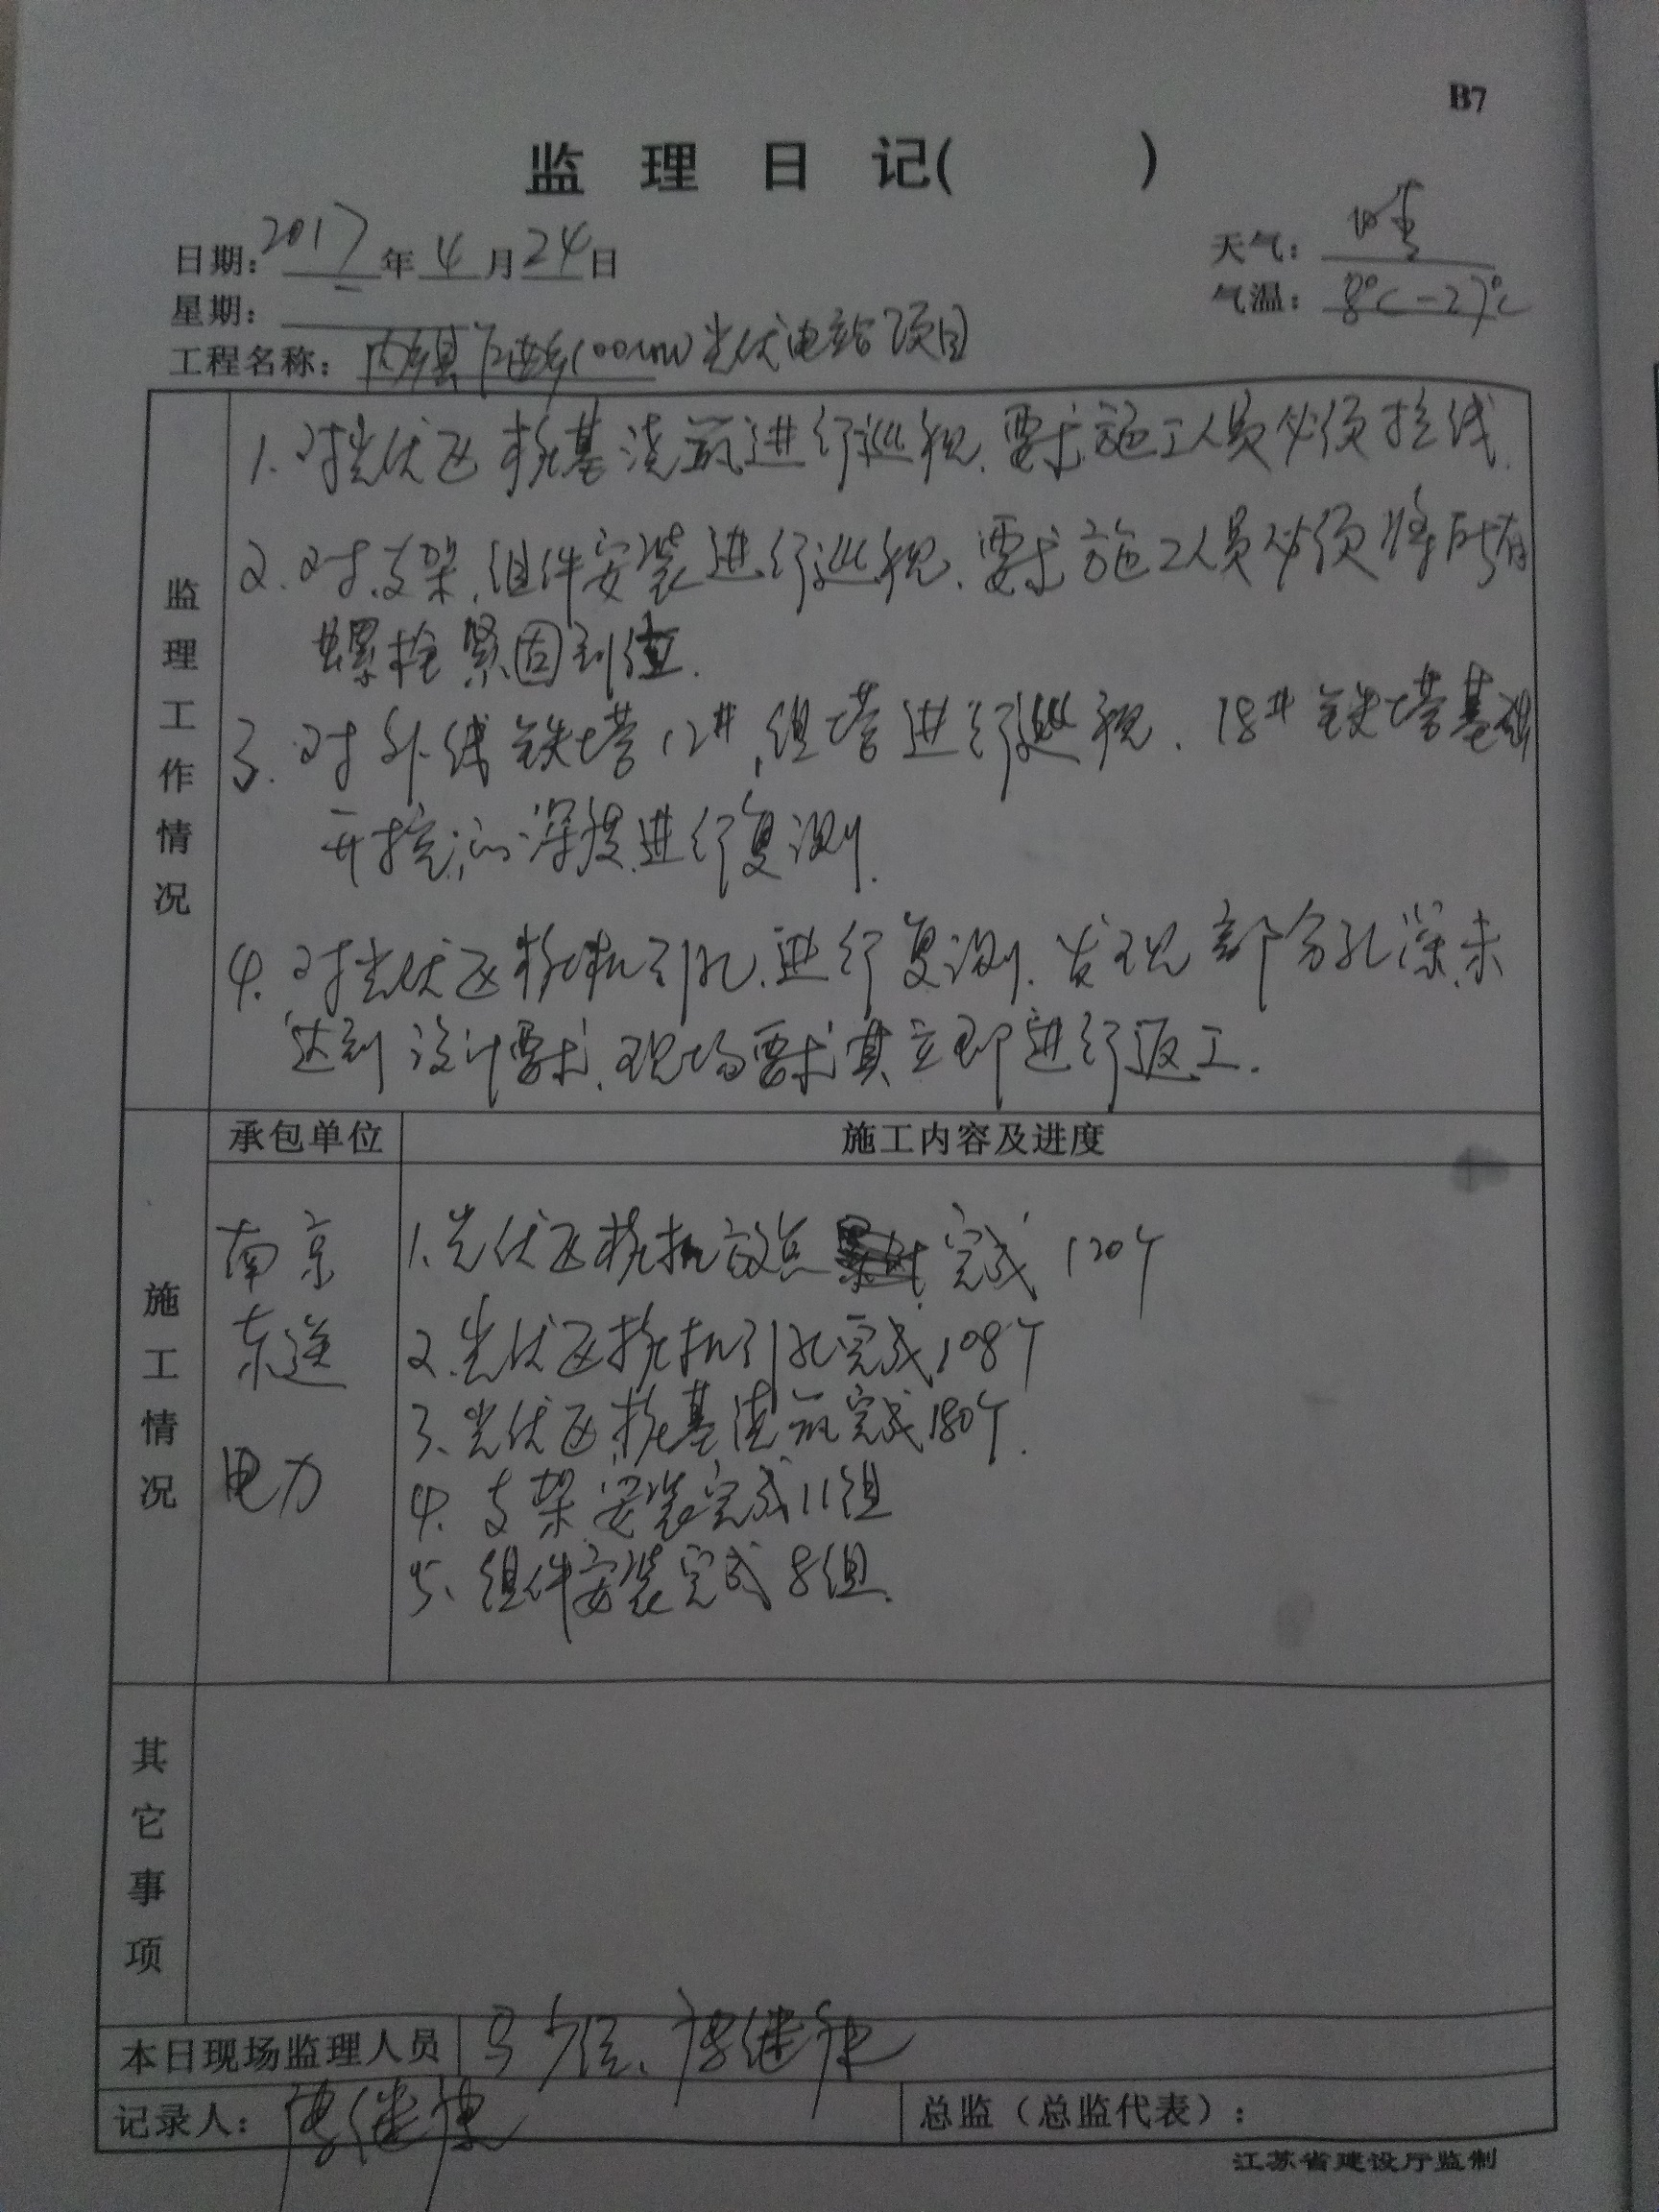 B7
监 理 日 记( )
日期: 2017 年 4 月 24 日
天气: 晴
星期: 一
气温: 8℃-27℃
工程名称: 内乡县 100MW光伏电站项目
监理工作情况
1. 对光伏区桩基浇筑进行巡视.要求施工人员必须拉线.
2. 对支架.组件安装进行巡视.要求施工人员必须将所有
螺栓紧固到位.
3. 对外线铁塔12#,组塔进行巡视.18#铁塔基础
开挖的深度进行复测.
4. 对光伏区桩机引孔.进行复测.发现部分孔深未
达到设计要求.现场要求其立即进行返工.
承包单位 施工内容及进度
施工情况
南京
东送
电力
1.光伏区桩机放点 完成120个
2.光伏区桩机引孔完成108个
3、光伏区桩基浇筑完成180个.
4. 支架安装完成11组
5、组件安装完成8组.
其它事项
本日现场监理人员
记录人:
总监（总监代表）:
江苏省建设厅监制